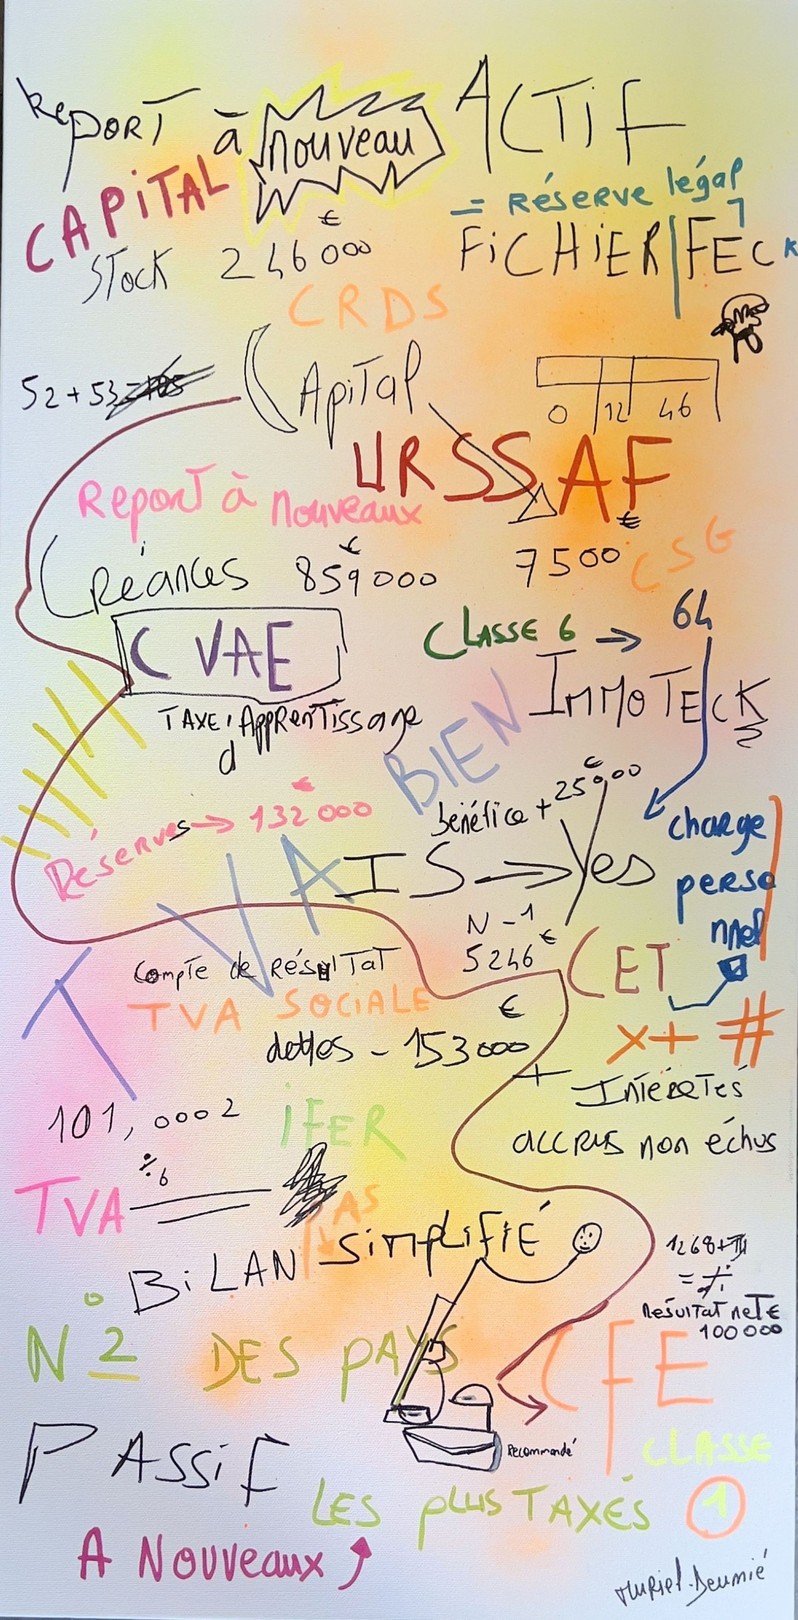 Report à nouveau ACTiF
CAPiTAL
= Réserve légal
Stock 246 000 €
FiCHiER FEC
CRDS
52+53=105
CApital
0 12 46
URSSAF
Report à nouveaux
Créances 859 000 €
7500 €
CSG
CVAE
CLASSE 6 → 64
TAXE d'Apprentissage
ImmoTEcK
BIEN
Réserves → 132 000 €
bénéfice + 25 000 €
IS → Yes
charge
perso
nnel
TVA
N-1
5246 €
CET
Compte de Résultat
TVA SOCIALE
dettes - 153 000 €
x+ #
+ Intéretés
accrus non échus
101,0002
iFER
÷6
TVA
AS
BiLAN Simplifié
1268+
=
Résultat net €
100 000
N° 2 DES PAYS
CFE
Recommandé
PASSiF
CLASSE
LES plus TAXÉS 1
A Nouveaux
Muriel Deumié